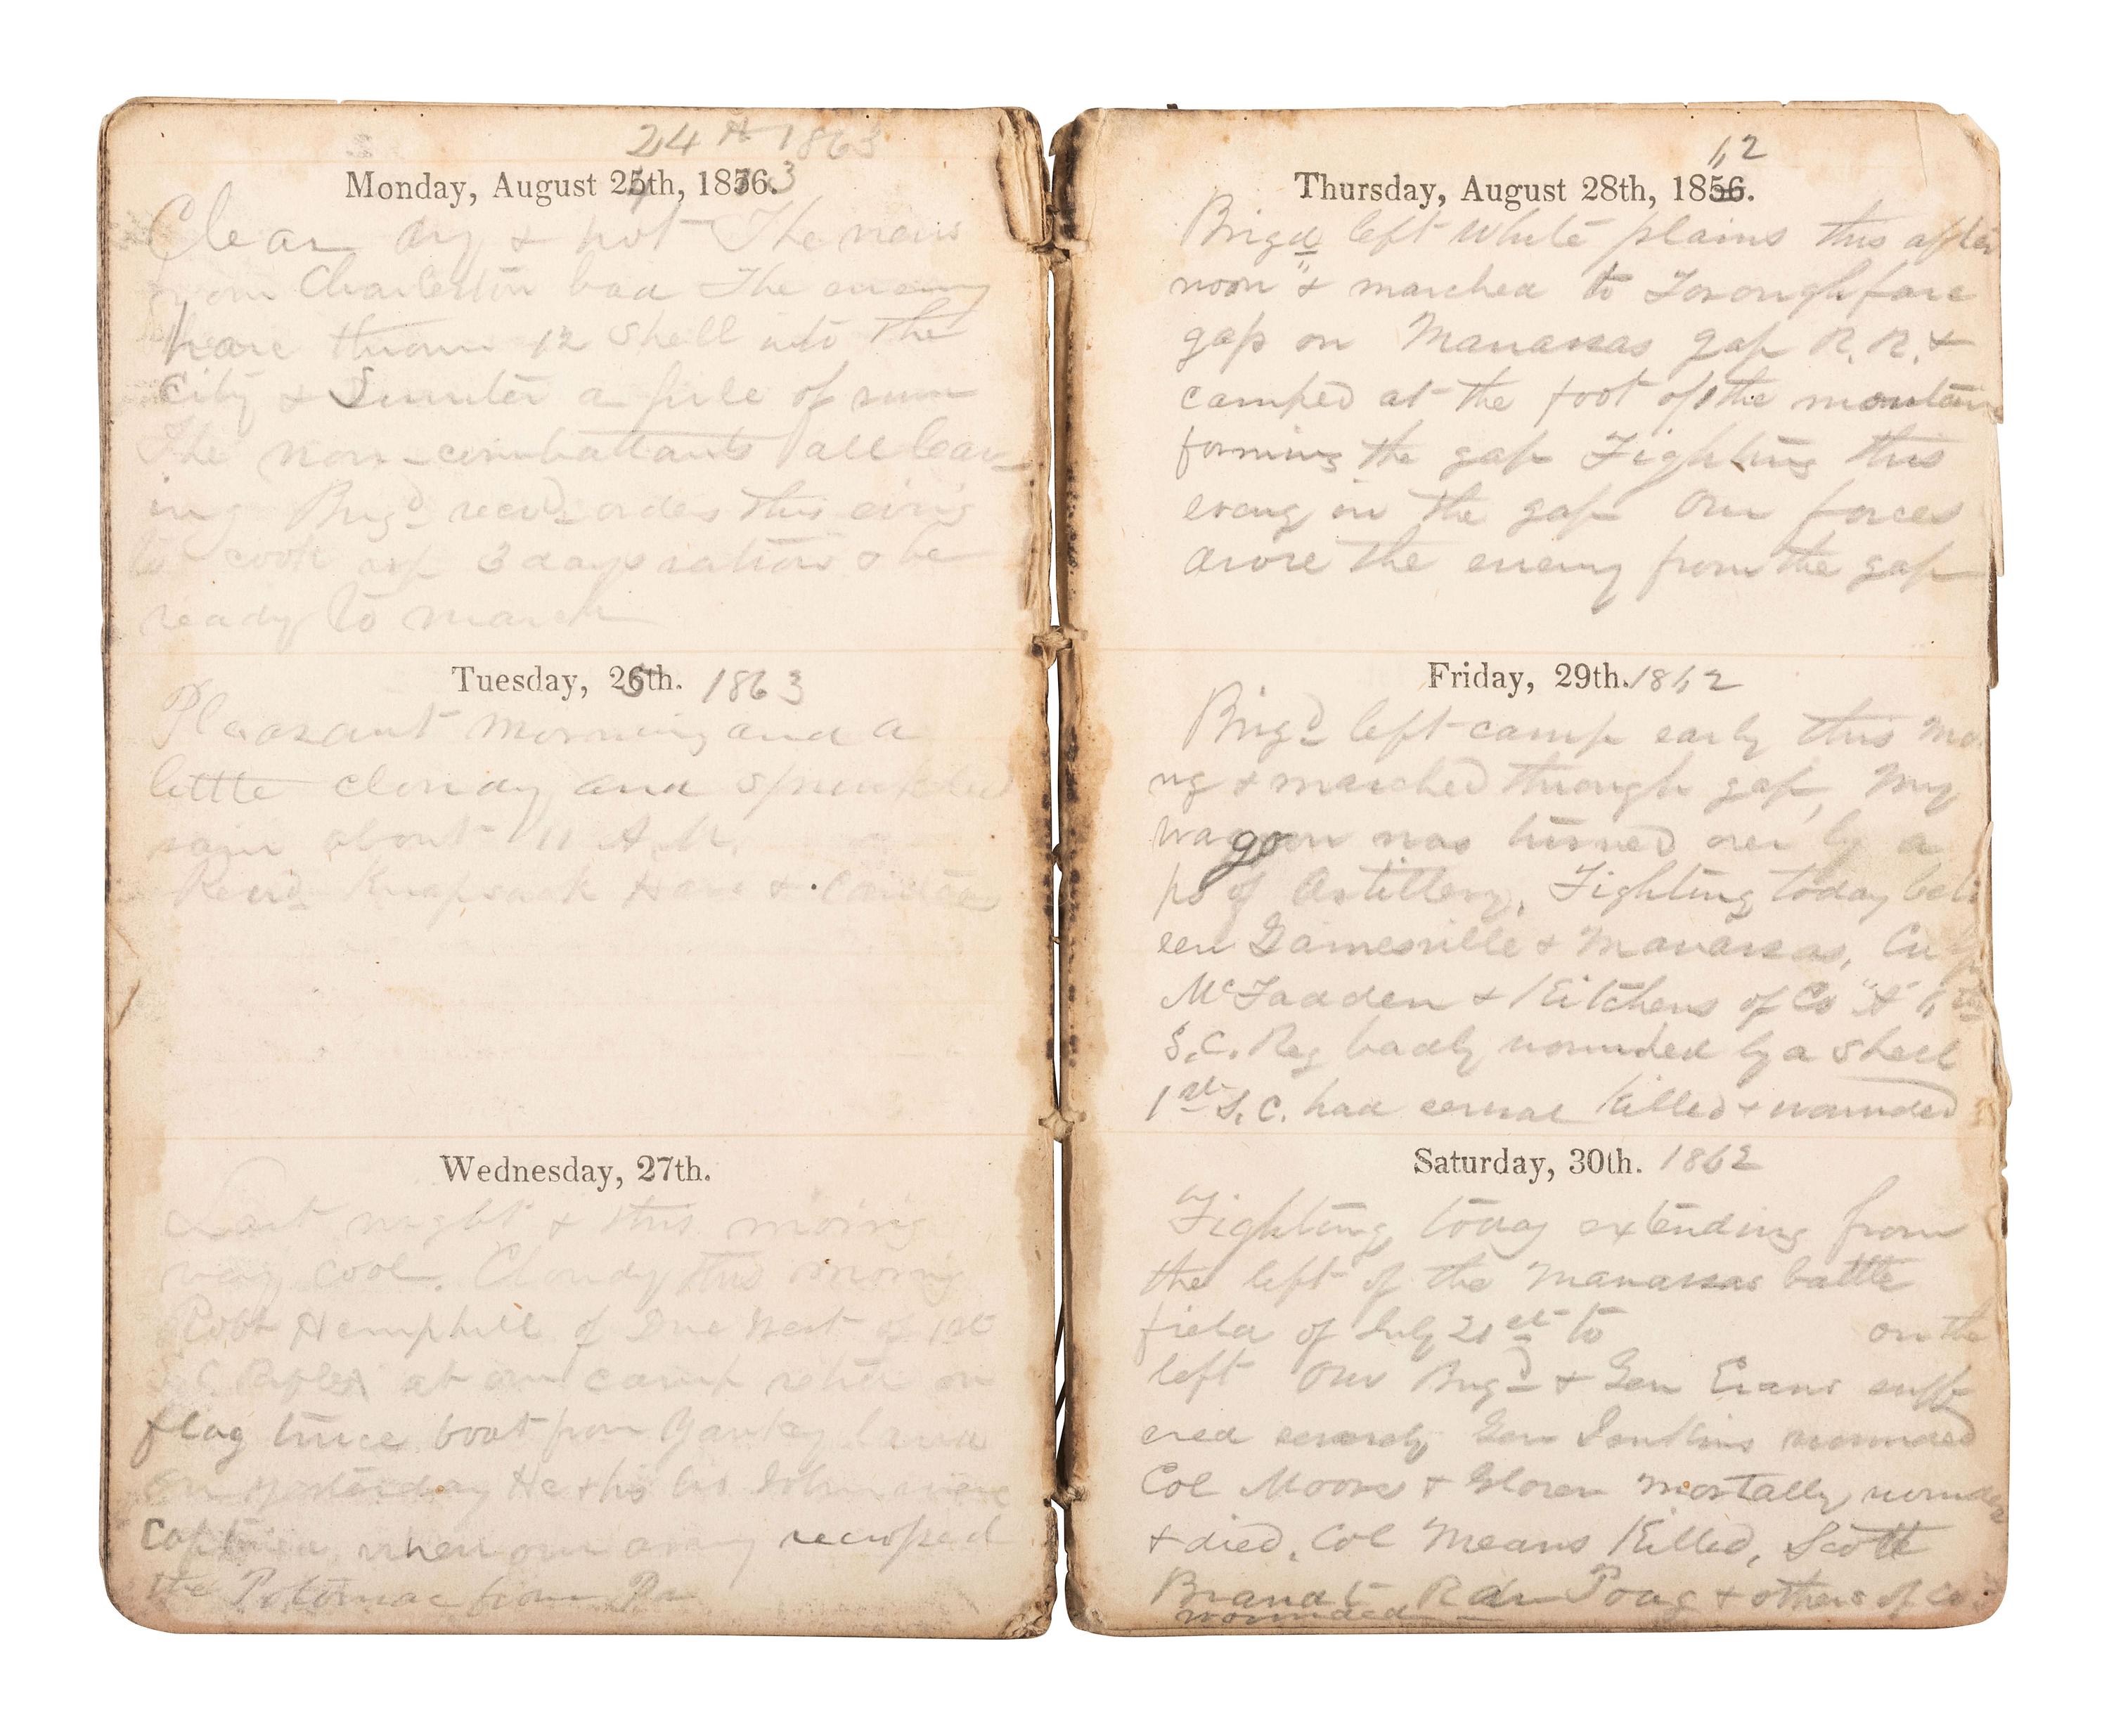 24th 1863
Monday, August 25th, 1856. 3
Clear dry & hot The news
from Charleston bad The enemy
have thrown 12 shell into the
City & Sumter a pile of ruin
The non-combattants all leav-
ing Brigd recvd orders this evng
to cook up 3 days rations & be
ready to march
Tuesday, 26th. 1863
Pleasant morning and a
little cloudy and sprinkled
rain about 11 A.M.
Recvd Knapsack Hav &
Wednesday, 27th.
Last night & this morng
very cool. Cloudy this morning
Robt Hemphill of Due West of 1st
S.C. Rifles at our camp retd on
flag truce boat from Yankey land
on yesterday He & his bro John were
captured when our army recrossed
the Potomac from Pa
62
Thursday, August 28th, 1856.
Brigd left White plains this after
noon & marched to Thoroughfare
gap on Manassas gap R.R. &
camped at the foot of the mountains
forming the gap Fighting this
eveng in the gap Our forces
drove the enemy from the gap
Friday, 29th. 1862
Brigd left camp early this mo
ng & marched through gap, My
waggon was turned over by a
ps of Artillery. Fighting today betw
een Gainesville & Manassas,
McFadden & Kitchens of Co "A" 6th
S.C. Reg badly wounded by a shell
1st S.C. had several killed & wounded
Saturday, 30th. 1862
Fighting today extending from
the left of the Manassas battle
field of July 21st to on the
left Our Brigd & Gen Evans suff
ered severely Gen Jenkins wounded
Col Moore & Glover mortally wounded
& died. Col Means Killed, Scott
Brandt Rdn Poag & others of Co
wounded